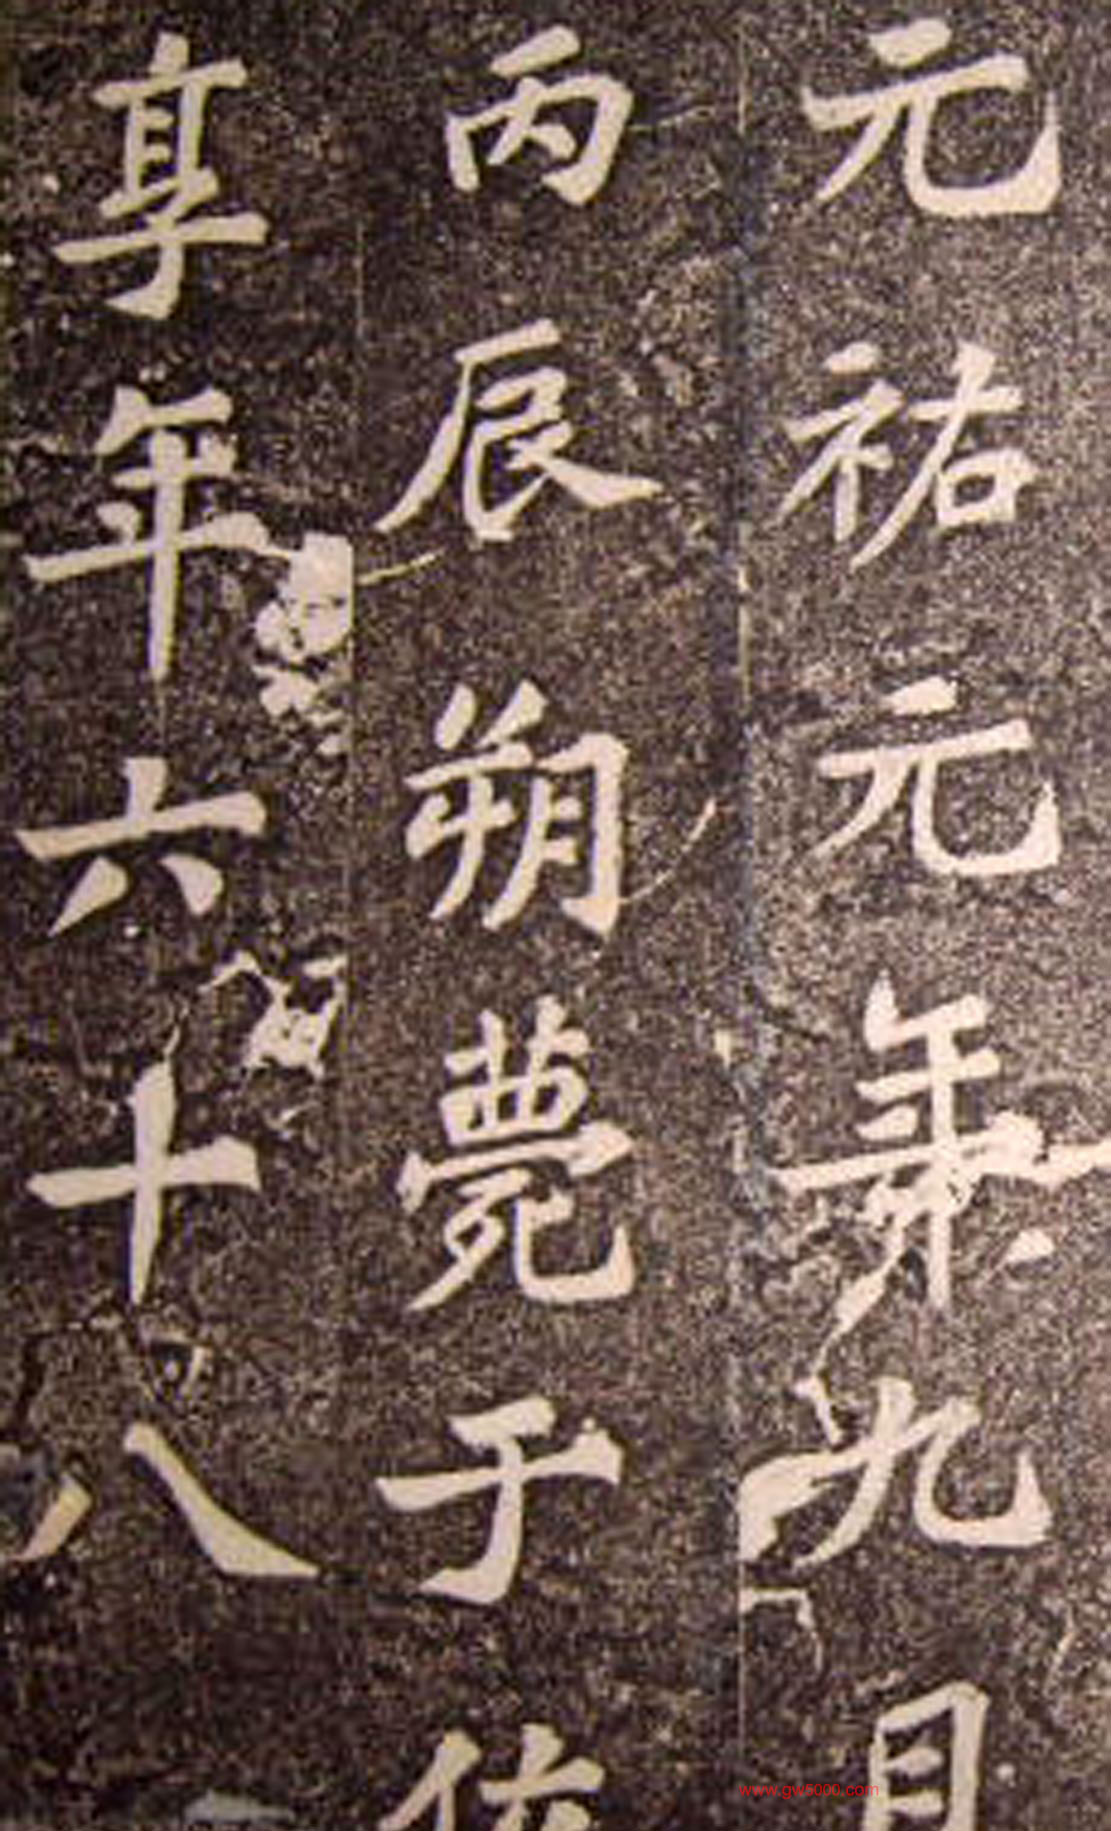 元祐元年九月
丙辰朔薨于位
享年六十八
www.gw5000.com